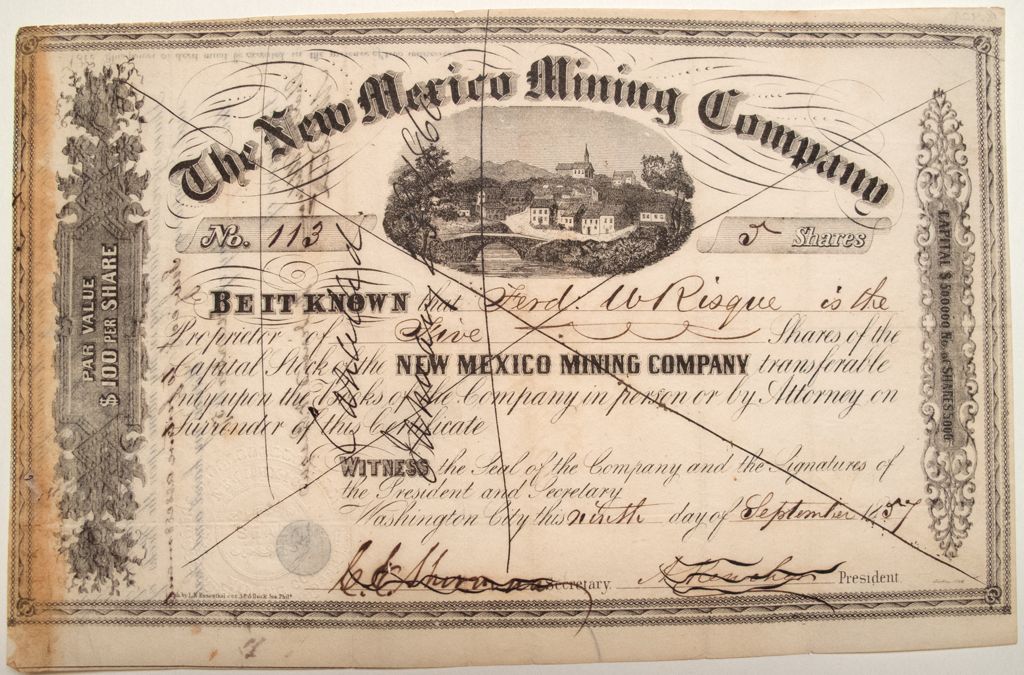 The New Mexico Mining Company
No. 113
5 Shares
PAR VALUE
$100 PER SHARE
CAPITAL $500000 No. of SHARES 5000
BE IT KNOWN that Ferd. W Risque is the
Proprietor of Five Shares of the
Capital Stock of the NEW MEXICO MINING COMPANY transferable
only upon the Books of the Company in person or by Attorney on
Surrender of this Certificate
WITNESS the Seal of the Company and the Signatures of
the President and Secretary
Washington City this ninth day of September 1857
C. E. Sherman Secretary.
President
Cancelled